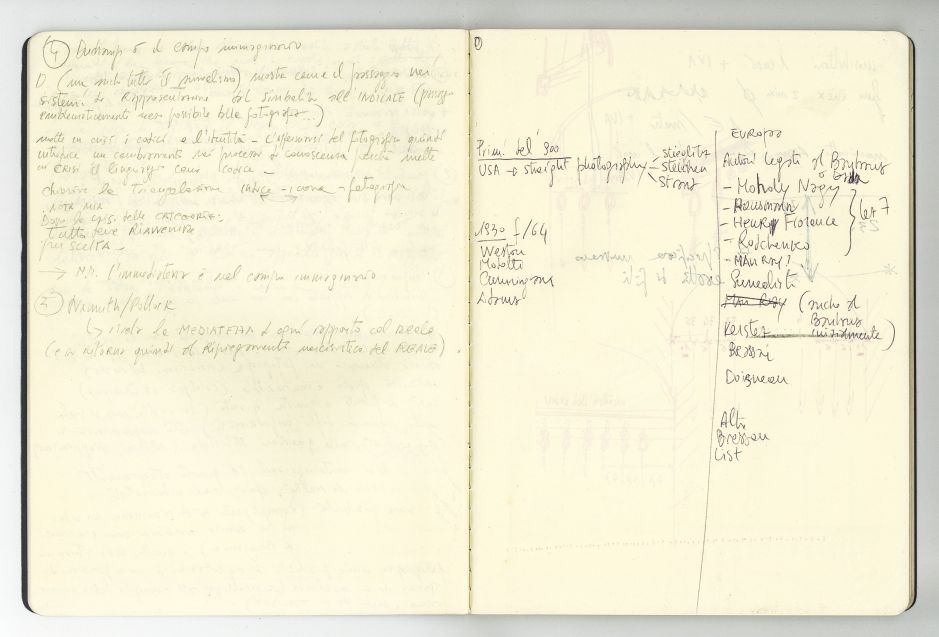 4 Duchamp o il campo immaginario
D (ma anche tutto il surrealismo) mostra come il passaggio nei
sistemi di Rappresentazione dal simbolico all'INDICALE (passaggio
emblematicamente reso possibile dalla fotografia...)
mette in crisi i codici e l'identità - L'affermarsi del fotografico quindi
un cambiamento nei processi di conoscenza perché mette
in CRISI il linguaggio come codice -
chiarire la Triangolazione indice - icona - fotografia
NOTA MIA
Dopo la crisi delle CATEGORIE
tutto deve RIAVVENIRE
per scelta -
→ N.D. l'immediatezza è nel campo immaginario
3 Namuth/Pollock
↳ rivela la MEDIATEZZA di ogni rapporto col REALE
(e un ritorno quindi al narcisistico del REALE)
0
Primi del '900
USA → straight photography
stieglitz
steichen
Strand
1930 f/64
Weston
Modotti
Cunningam
Adams
EUROPA
Autori legati al Bauhaus
o
- Moholy Nagy
- Hausmann
- Henry Florence
- Rodchenko
- MAN RAY?
Surrealisti
Man Ray (anche al
Bauhaus
inizialmente)
Kertesz
Brassai
Doisneau
Altri
Bresson
List